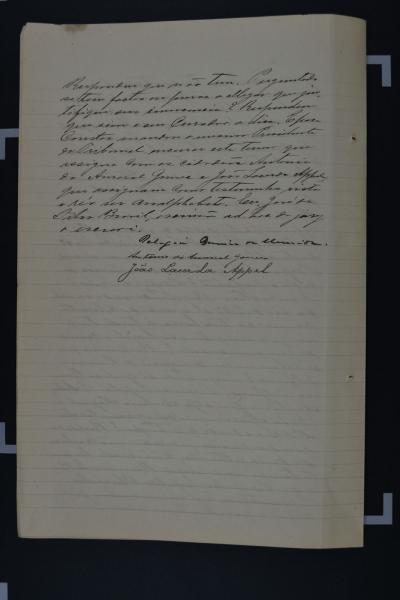 Respondeu que não tem. Perguntado
se tem factos ou provas a allegar que jus-
tifiquem sua innocencia? Respondeu
que sim e seu Curador o dira. E para
Constar mandou o mesmo Presidente
do Tribunal lavrar este termo que
assigna com os cidadãos Antonio
do Amaral Gomes e João Lacerda Appel
que assignam como testemunhas visto
o réo ser analphabeto. Eu, José da
Silva Brasil, escrivão ad hoc do jury
o escrevi.
Antonio do Amaral Gomes
João Lacerda Appel